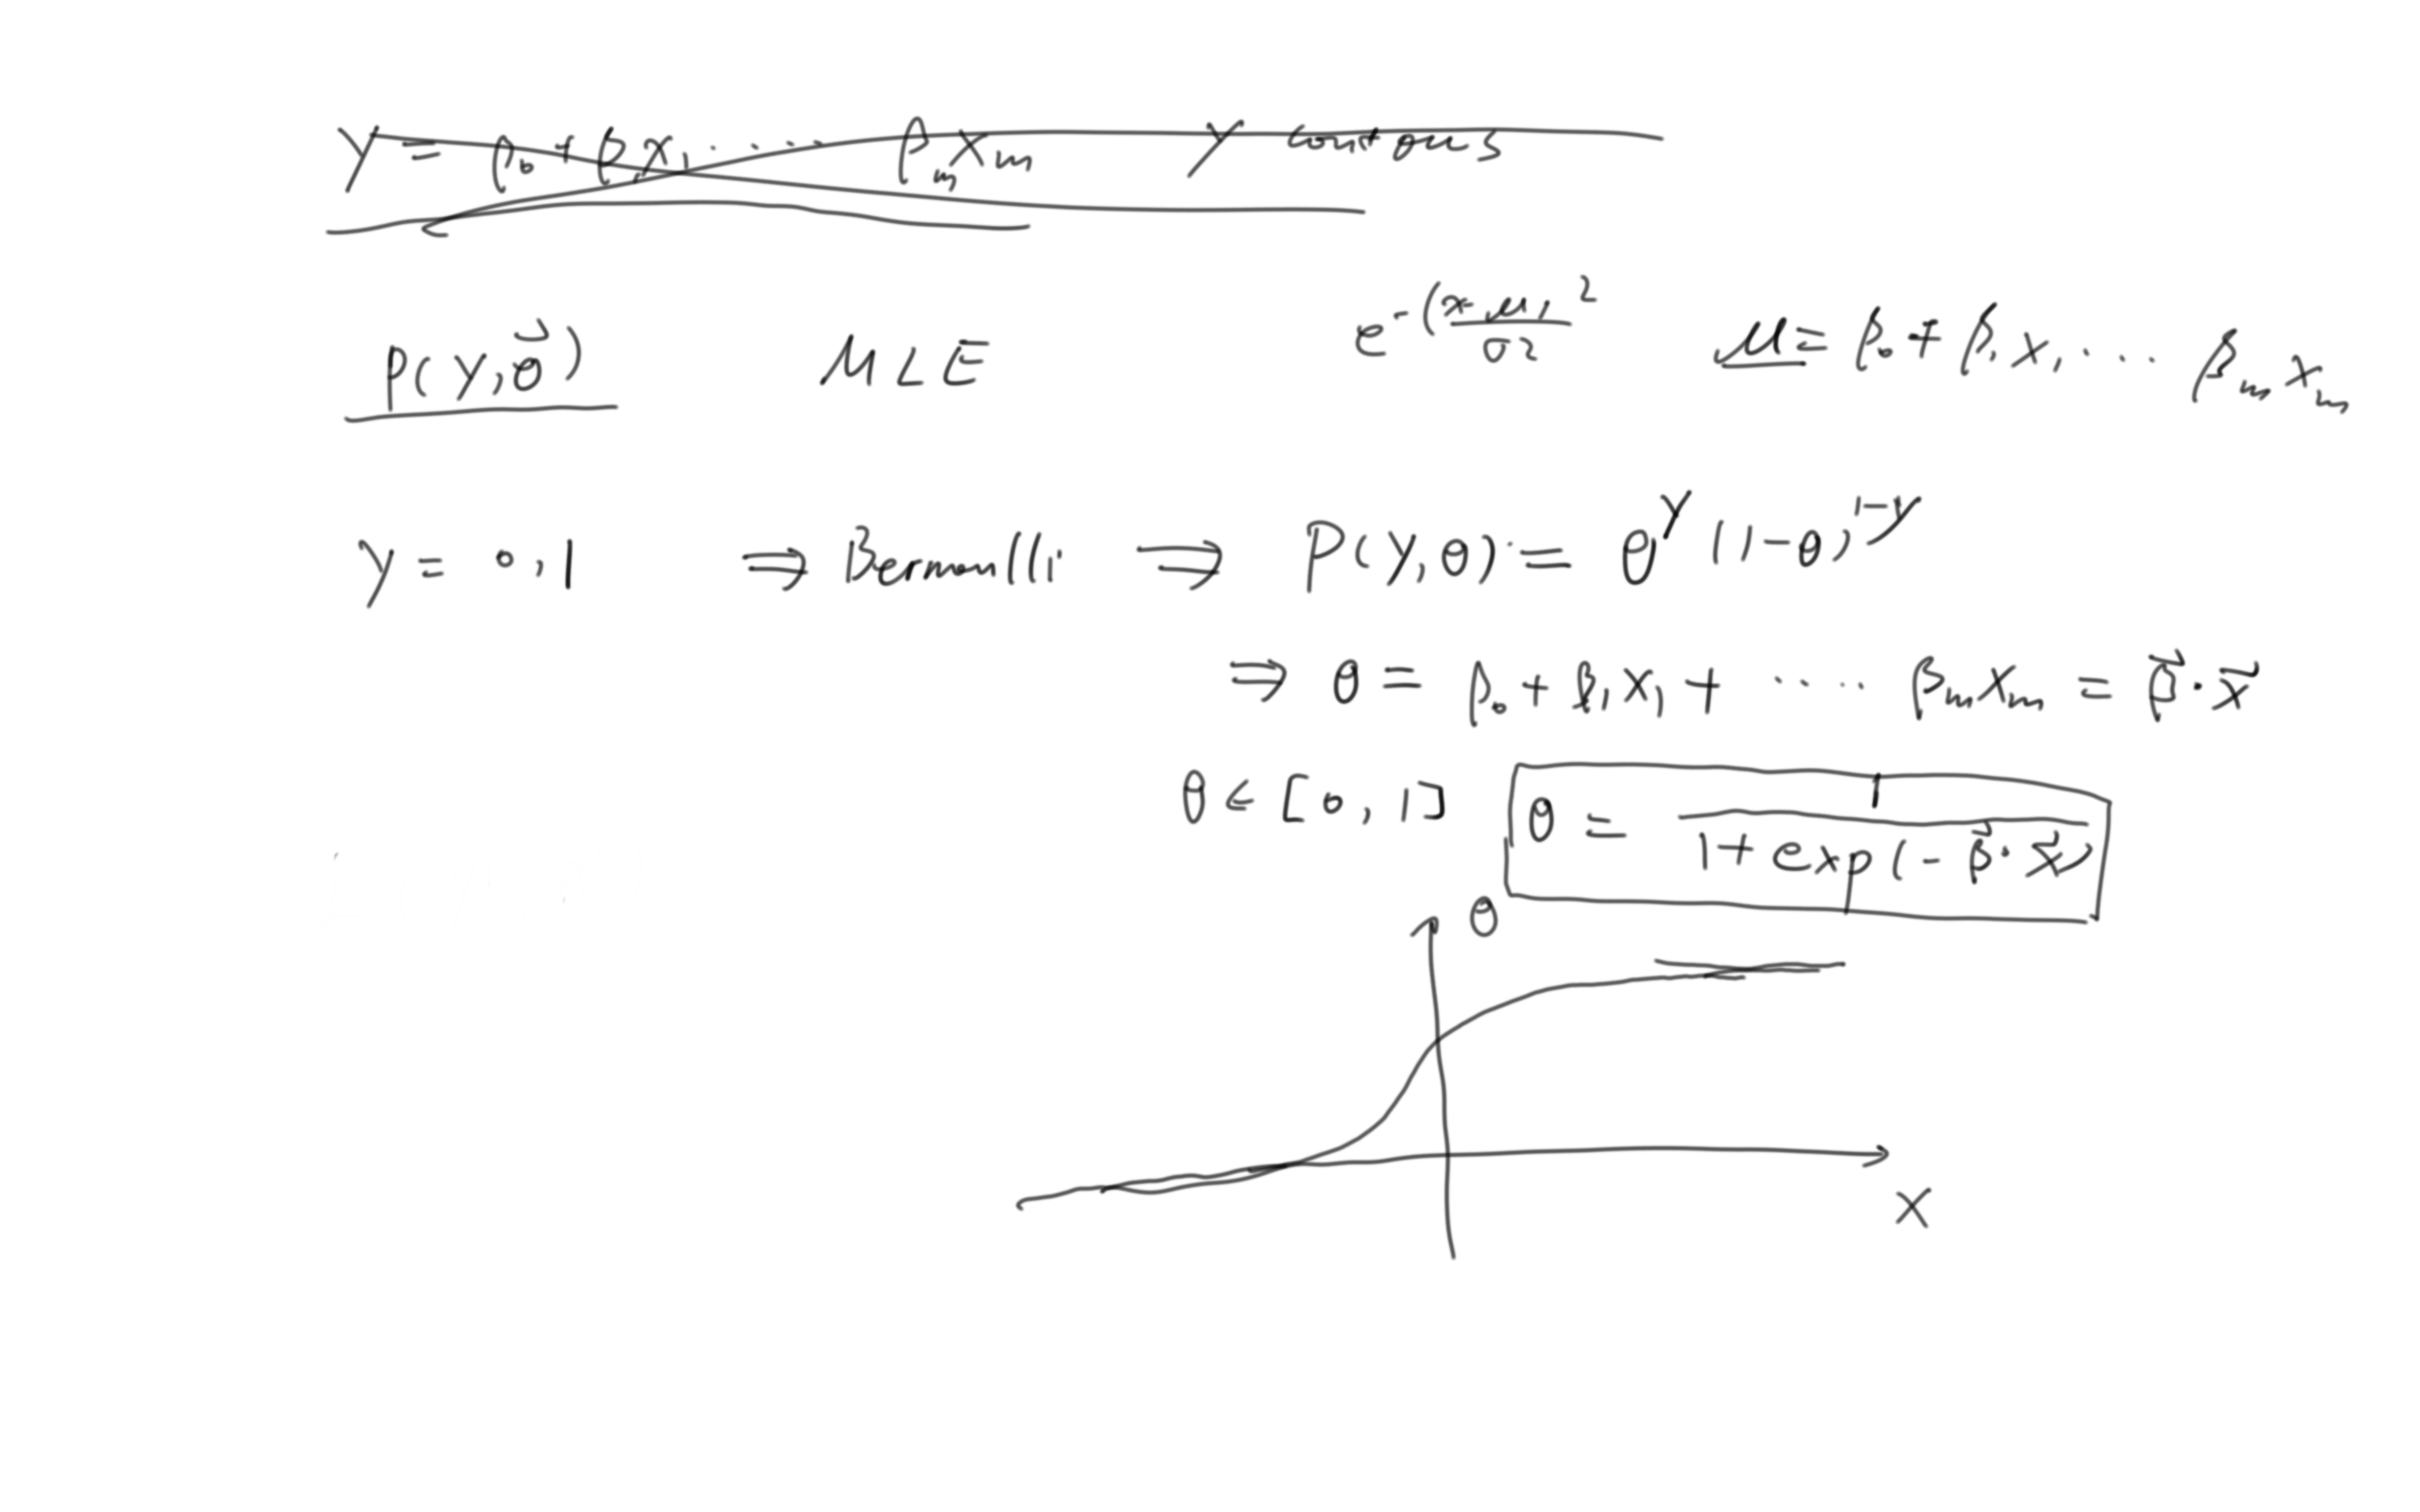 Y = β₀ + β₁x₁ .... βₘxₘ Y
P(y, θ⃗) MLE e^{-(x-μ)²/σ²} μ = β₀ + β₁x₁ .... βₘxₘ
y = 0, 1 ⇒ ⇒ P(y, θ) = θ^y (1-θ)^{1-y}
⇒ θ = β₀ + β₁x₁ + .... βₘxₘ = β⃗·x⃗
θ ∈ [0, 1] θ = 1/(1 + exp(-β⃗·x⃗))
θ
x